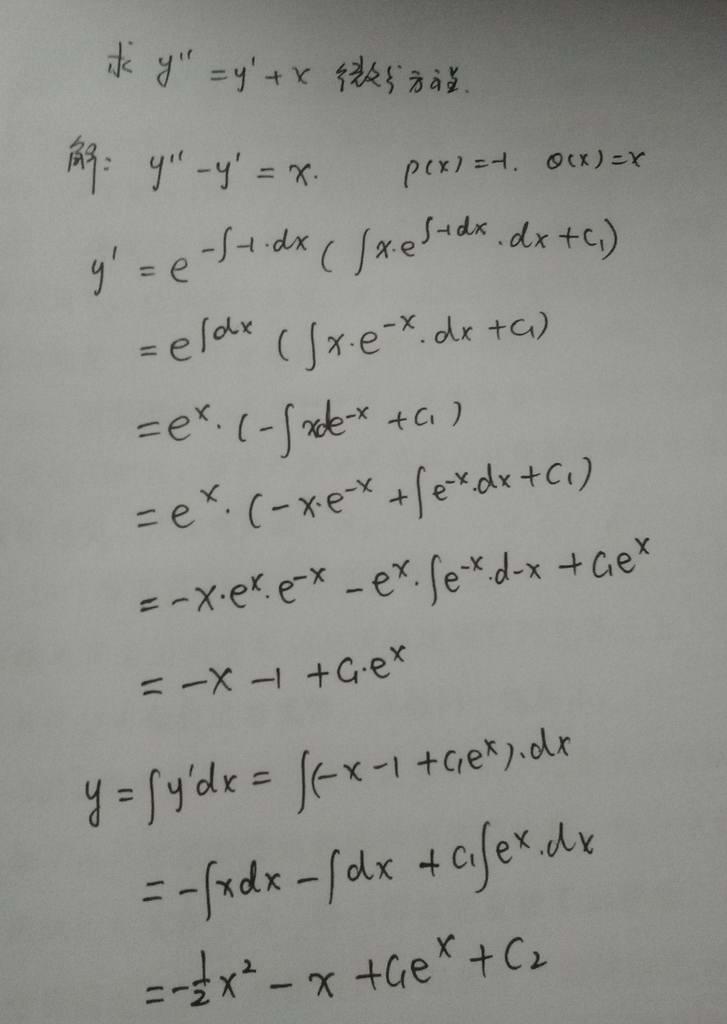 求 y" = y' + x 微分方程.
解: y" - y' = x. p(x) = -1. Q(x) = x
y' = e^{-∫-1·dx} (∫x·e^{∫-1dx}·dx + C₁)
= e^{∫dx} (∫x·e^{-x}·dx + C₁)
= e^x·(-∫xde^{-x} + C₁)
= e^x·(-x·e^{-x} + ∫e^{-x}·dx + C₁)
= -x·e^x·e^{-x} - e^x·∫e^{-x}·d-x + C₁e^x
= -x - 1 + C₁·e^x
y = ∫y'dx = ∫(-x - 1 + C₁e^x)·dx
= -∫xdx - ∫dx + C₁∫e^x·dx
= -\frac{1}{2}x² - x + C₁e^x + C₂